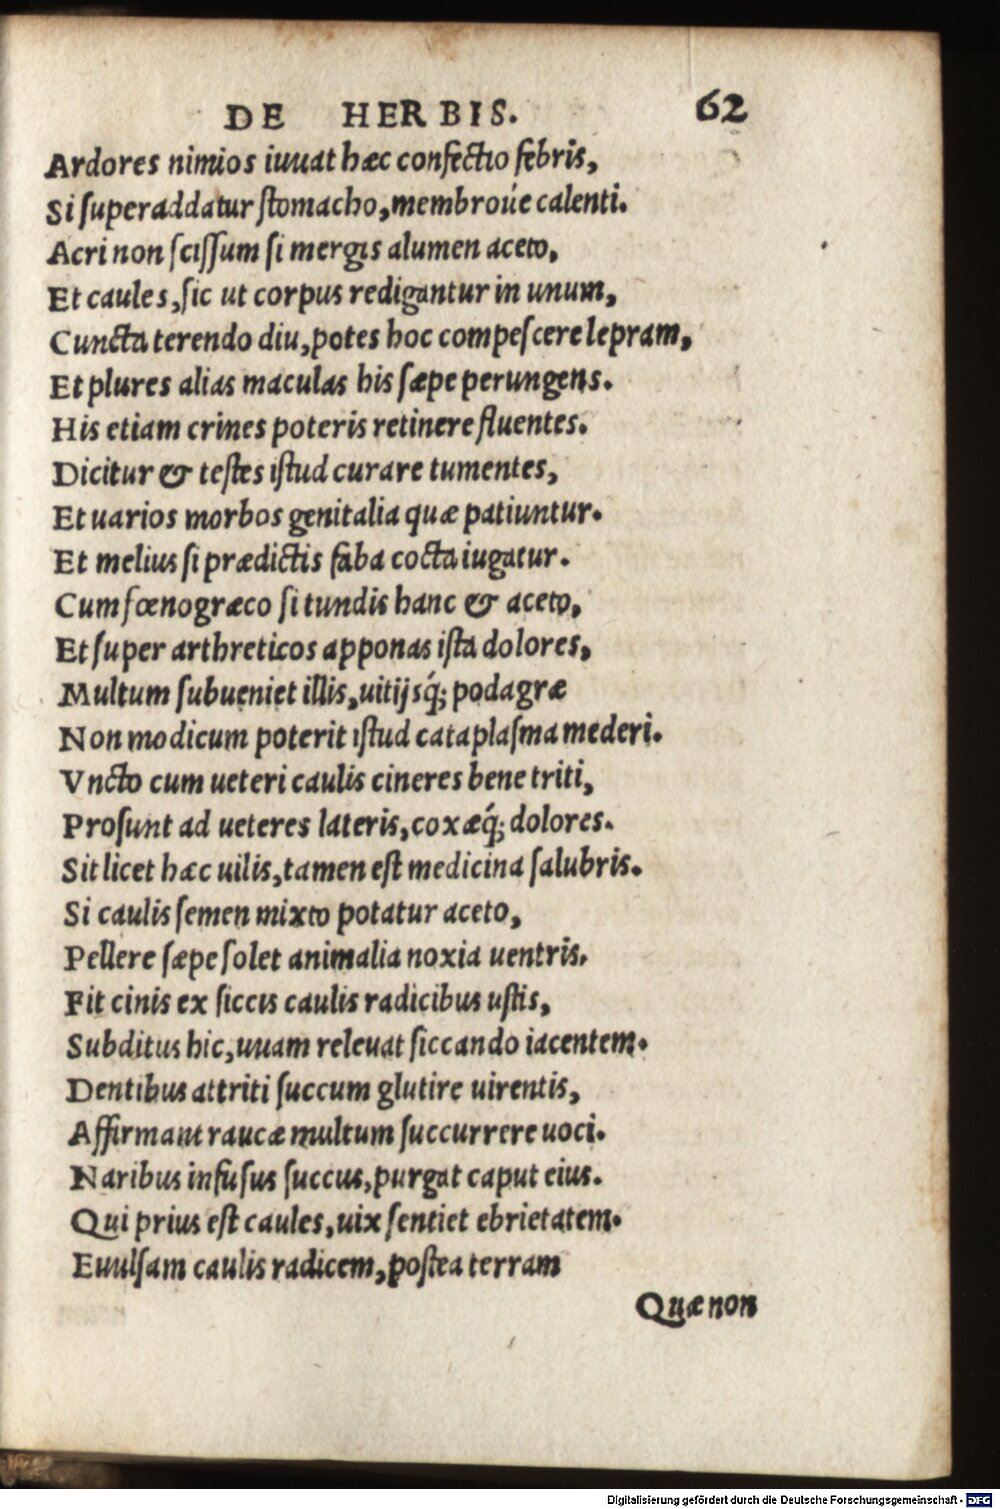 DE HERBIS. 62
Ardores nimios iuuat hæc confectio febris,
Si superaddatur stomacho, membroúe calenti.
Acri non scissum si mergis alumen aceto,
Et caules, sic ut corpus redigantur in unum,
Cuncta terendo diu, potes hoc compescere lepram,
Et plures alias maculas his sæpe perungens.
His etiam crines poteris retinere fluentes.
Dicitur & testes istud curare tumentes,
Et uarios morbos genitalia quæ patiuntur.
Et melius si prædictis faba cocta iugatur.
Cum fœnogræco si tundis hanc & aceto,
Et super arthreticos apponas ista dolores,
Multum subueniet illis, uitijsq́; podagræ
Non modicum poterit istud cataplasma mederi.
Vncto cum ueteri caulis cineres bene triti,
Prosunt ad ueteres lateris, coxæq́; dolores.
Sit licet hæc uilis, tamen est medicina salubris.
Si caulis semen mixto potatur aceto,
Pellere sæpe solet animalia noxia uentris.
Fit cinis ex siccis caulis radicibus ustis,
Subditus hic, uuam releuat siccando iacentem.
Dentibus attriti succum glutire uirentis,
Affirmant raucæ multum succurrere uoci.
Naribus infusus succus, purgat caput eius.
Qui prius est caules, uix sentiet ebrietatem.
Euulsam caulis radicem, postea terram
Quæ non
Digitalisierung gefördert durch die Deutsche Forschungsgemeinschaft - DFG